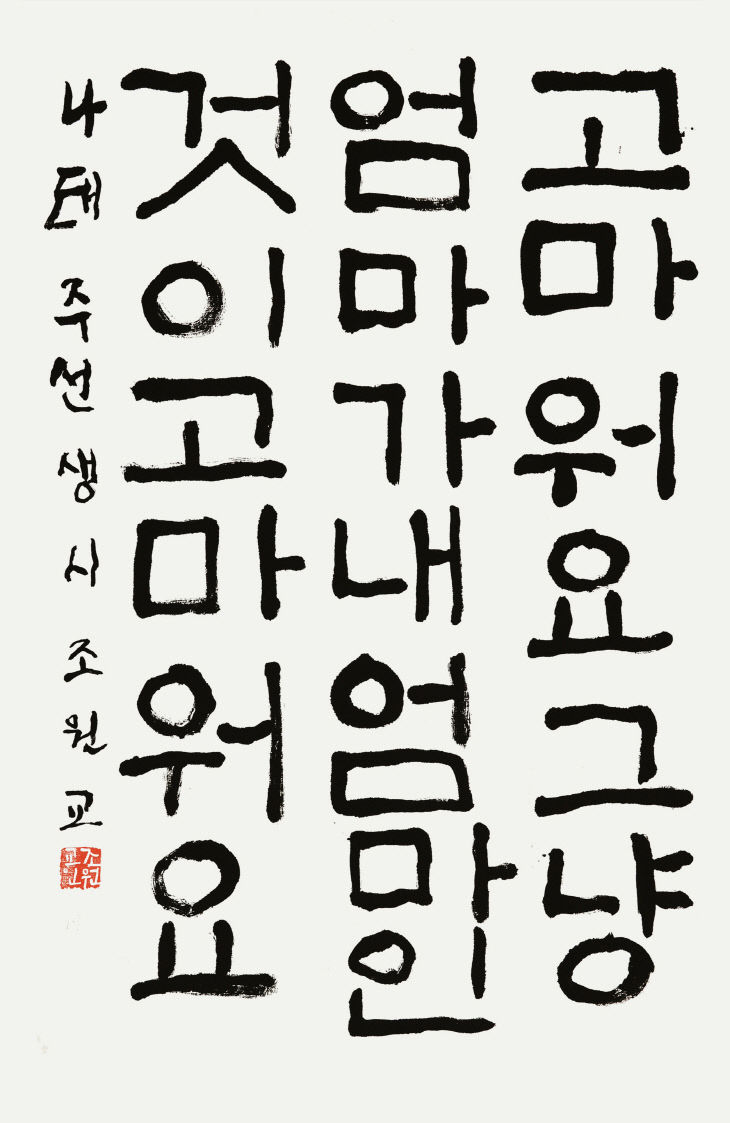 고마워요그냥
엄마가내엄마인
것이고마워요
나태주선생시조원교
조원교인